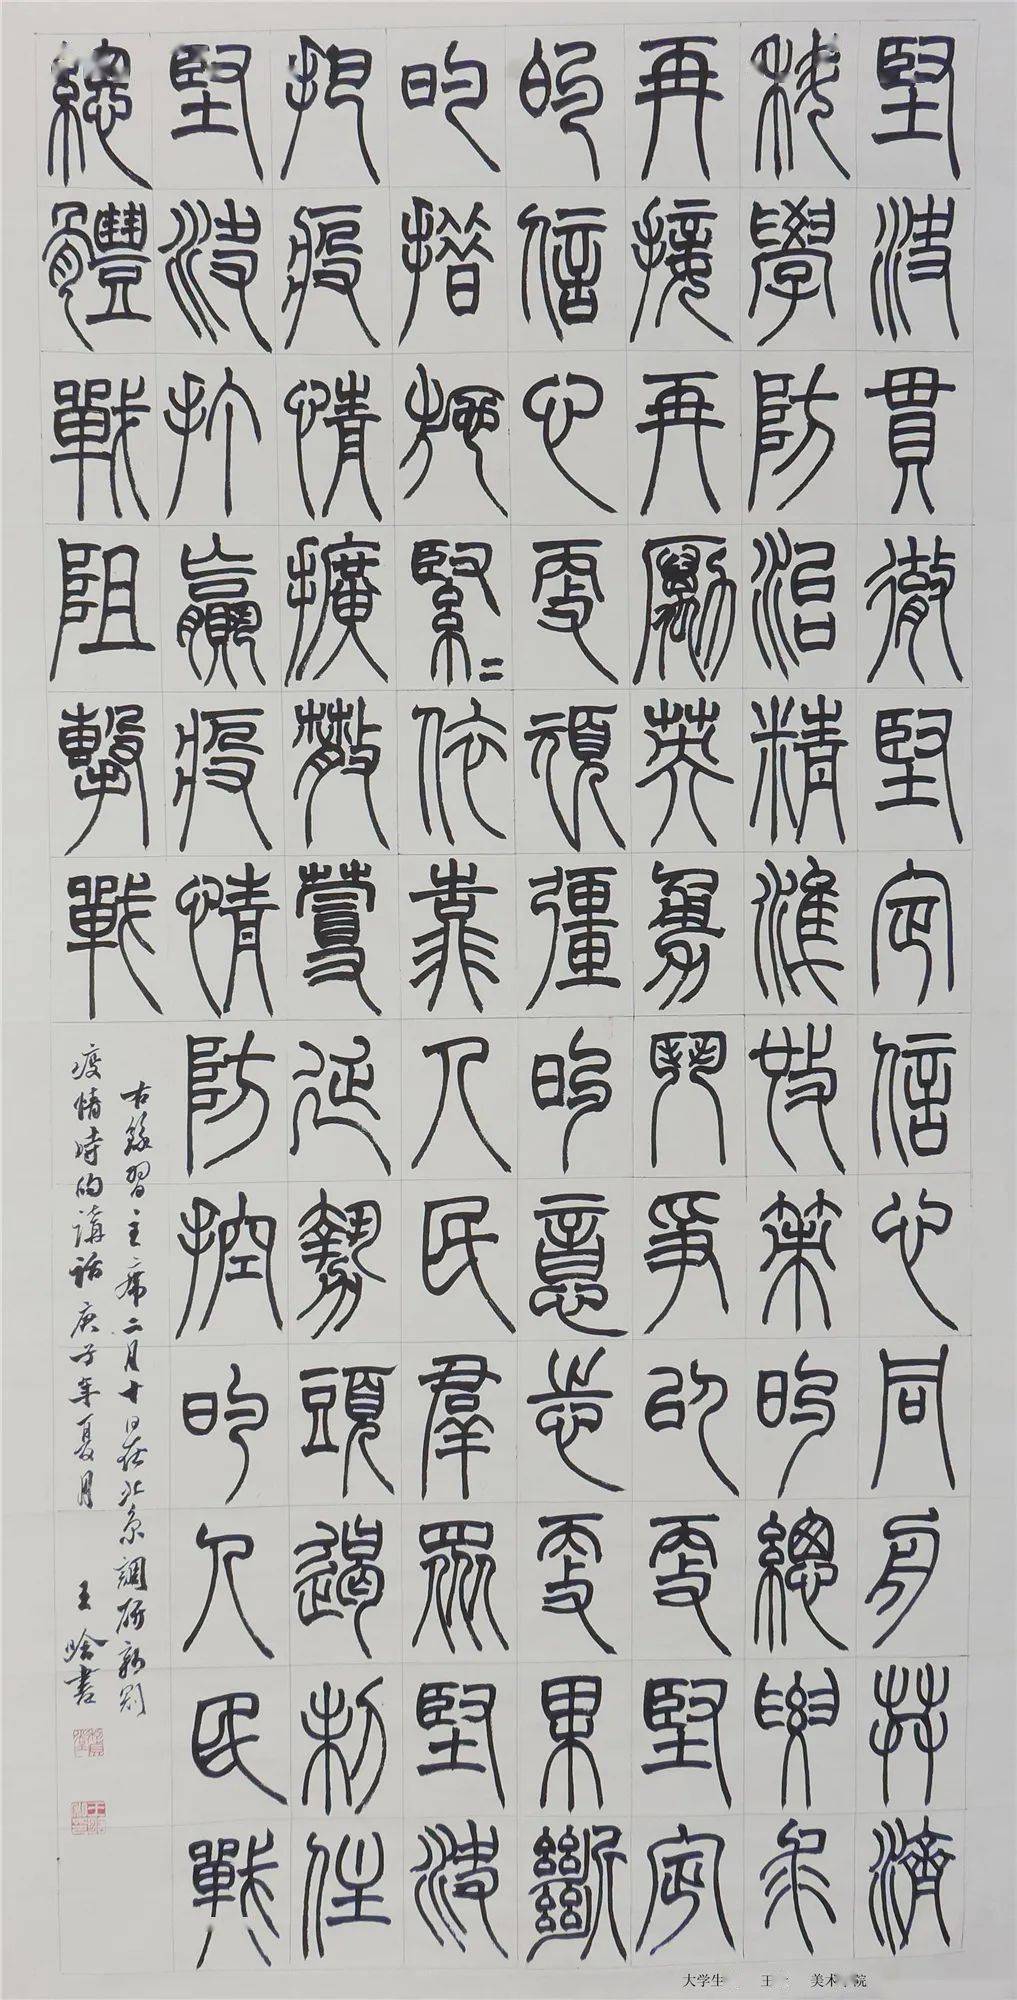 堅決貫徹堅定信心同舟共濟
科學防治精準施策的總要求
再接再勵英勇鬥爭以更堅定
的信心更頑彊的意志更果斷
的措施緊〻依靠人民羣眾堅決
把疫情擴散蔓延勢頭遏制住
堅決打贏疫情防控的人民戰
總體戰阻擊戰
右錄習主席二月十日在北京調研新冠
疫情時的講話庚子年夏月 王晗書
大学生 王 美术 院